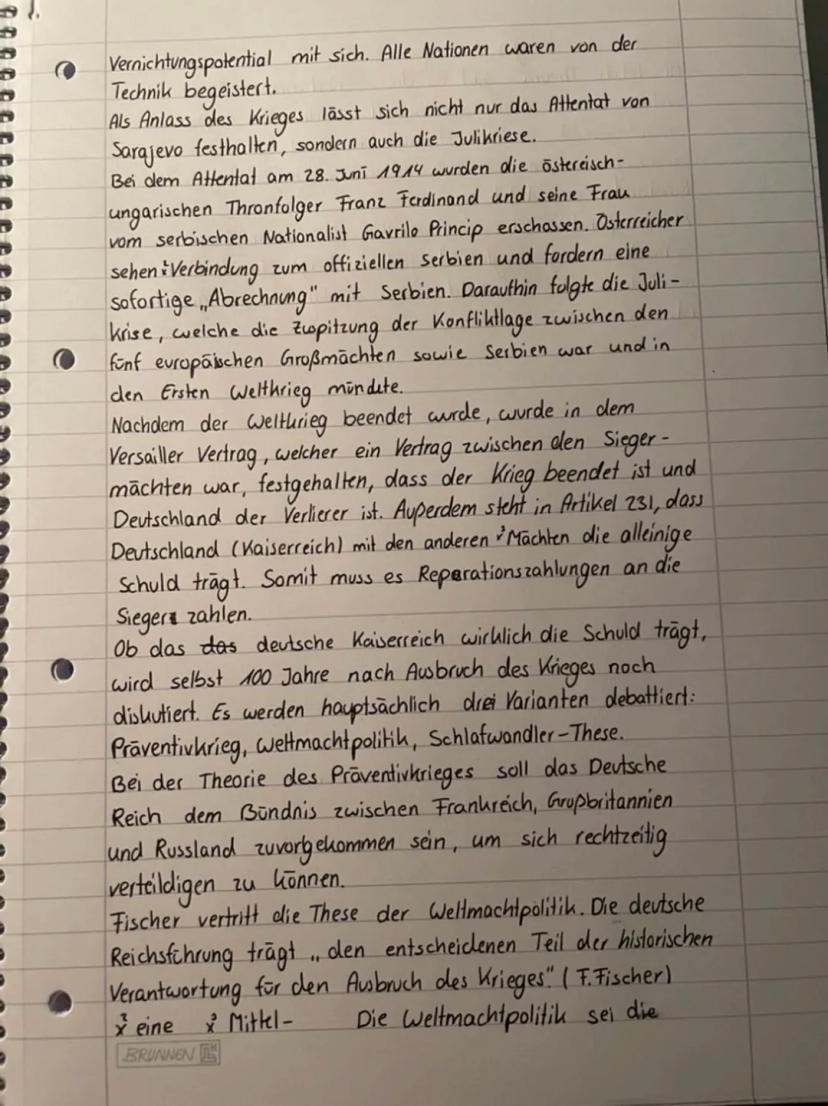 1.
Vernichtungspotential mit sich. Alle Nationen waren von der
Technik begeistert.
Als Anlass des Krieges lässt sich nicht nur das Attentat von
Sarajevo festhalten, sondern auch die Julikriese.
Bei dem Attentat am 28. Juni 1914 wurden die östereisch-
ungarischen Thronfolger Franz Ferdinand und seine Frau
vom serbischen Nationalist Gavrilo Princip erschossen. Österreicher
sehen Verbindung zum offiziellen Serbien und fordern eine
sofortige „Abrechnung" mit Serbien. Daraufhin folgte die Juli-
krise, welche die Zuspitzung der Konfliktlage zwischen den
fünf europäischen Großmächten sowie Serbien war und in
den Ersten Weltkrieg mündete.
Nachdem der Weltkrieg beendet wurde, wurde in dem
Versailler Vertrag, welcher ein Vertrag zwischen den Sieger-
mächten war, festgehalten, dass der Krieg beendet ist und
Deutschland der Verlierer ist. Außerdem steht in Artikel 231, dass
Deutschland (Kaiserreich) mit den anderen Mächten die alleinige
Schuld trägt. Somit muss es Reparationszahlungen an die
Sieger zahlen.
Ob das das deutsche Kaiserreich wirklich die Schuld trägt,
wird selbst 100 Jahre nach Ausbruch des Krieges noch
diskutiert. Es werden hauptsächlich drei Varianten debattiert:
Präventivkrieg, Weltmachtpolitik, Schlafwandler-These.
Bei der Theorie des Präventivkrieges soll das Deutsche
Reich dem Bündnis zwischen Frankreich, Großbritannien
und Russland zuvorgekommen sein, um sich rechtzeitig
verteildigen zu können.
Fischer vertritt die These der Weltmachtpolitik. Die deutsche
Reichsführung trägt „den entscheidenen Teil der historischen
Verantwortung für den Ausbruch des Krieges" (F. Fischer)
eine Mittel- Die Weltmachtpolitik sei die
BRUNNEN